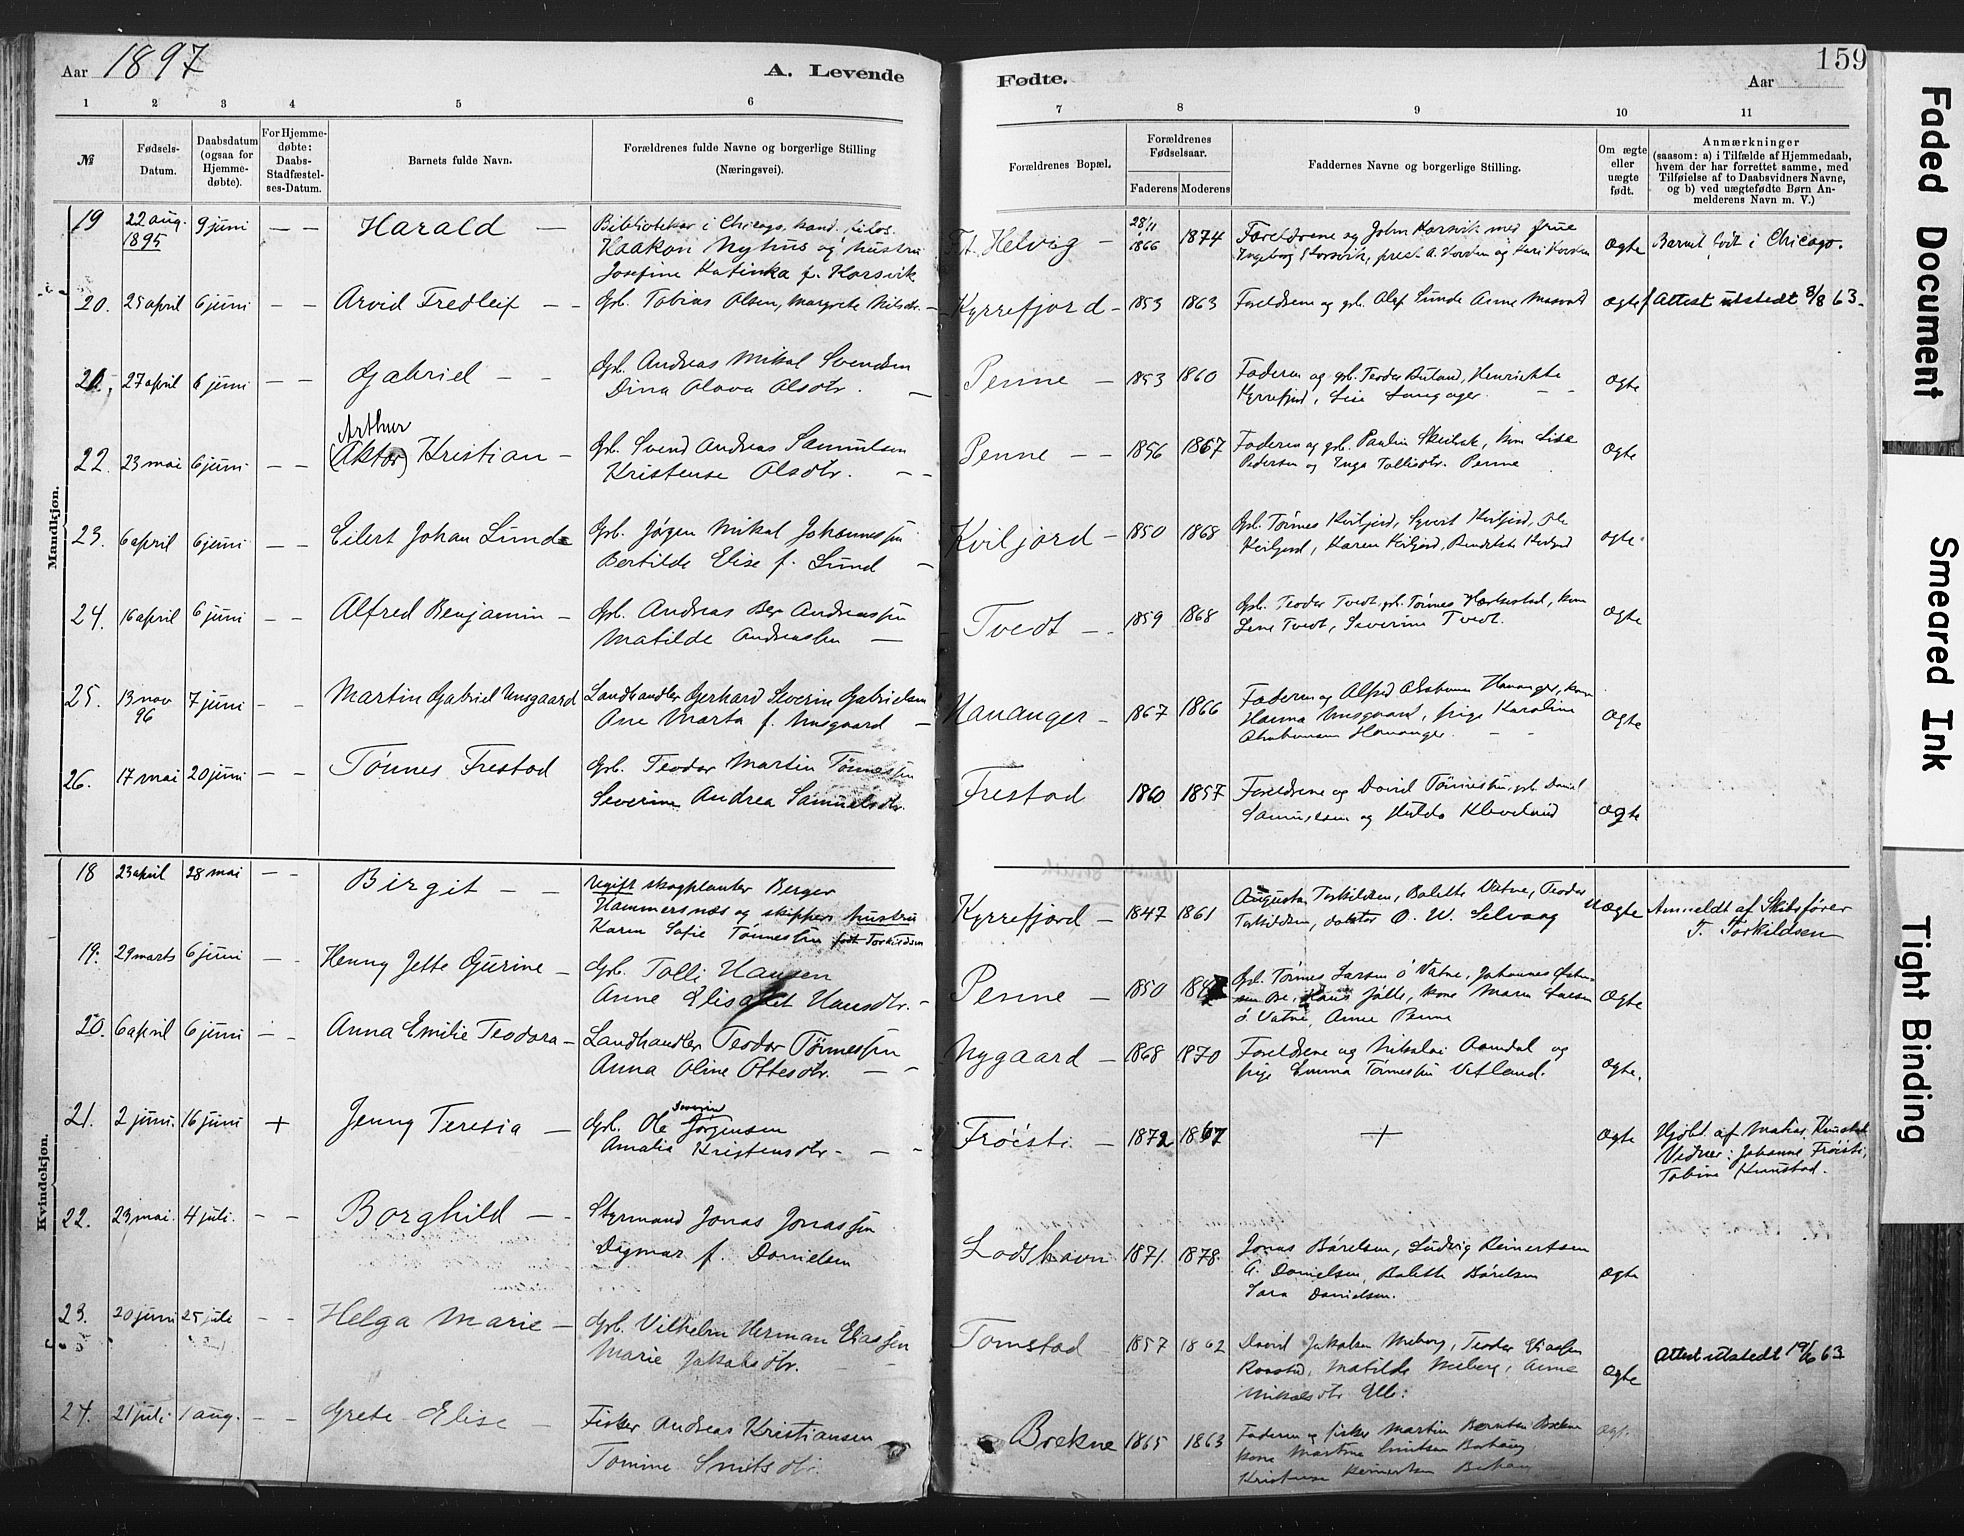 Aar 1897
A. Levende
Fødte.
Aar
159
1 2 3 4 5 6 7 8 9 10 11
№
Fødsels-
Datum.
Daabsdatum
(ogsaa for
Hjemme-
døbte).
For Hjemme-
døbte:
Daabs-
Stadfæstel-
ses-Datum.
Barnets fulde Navn.
Forældrenes fulde Navne og borgerlige Stilling
(Næringsvei).
Forældrenes Bopæl.
Forældrenes
Fødselsaar.
Faderens Moderens
Faddernes Navne og borgerlige Stilling.
Om ægte
eller
uægte
født.
Anmærkninger
(saasom: a) i Tilfælde af Hjemmedaab,
hvem der har forrettet samme, med
Tilføielse af to Daabsvidners Navne,
og b) ved uægtefødte Børn An-
melderens Navn m. V.)
Mandkjøn.
19 22 aug. 1895 9 juni — — Harald —
Bibliotekar i Chicago, kand. filos.
Haakon Nyhus og hustru
Josefine Katinka f. Korsvik
Helvig — 28/11 1866 1874
Forældrene og John Korsvik med frue
Ingeborg Korsvik,
ægte Barnet født i Chicago.
20. 25 april 6 juni — — Arvid Fredleif — —
Gbr. Tobias Olsen, Margrete Nilsdtr. —
Kyrrefjord — 1853 1863
Foreldrene og gbr. Olaf Lunde Anne
ægte Attest utstedt 8/8 63.
21. 27 april 6 juni — — Gabriel — —
Gbr. Andreas Mikal Svendsen
Dina Olava Olsdtr. —
Penne — 1853 1860
Faderen og gbr. Teodor Henriette
Kyrrefjord, Lise
ægte
22. 23 mai 6 juni — — Arthur (Aktor) Kristian —
Gbr. Svend Andreas Samuelsen
Kristense Olsdtr. — —
Penne — 1856 1867
Faderen og gbr. Paulin kone Lise
Pedersen og Inga Tollisdtr. Penne
ægte
23. 6 april 6 juni — — Eilert Johan Lunde
Gbr. Jørgen Mikal Johannessen
Bertilde Elise f. Lund —
Kviljord — 1850 1868
Gbr. Tønnes Kviljord, Syvert Kviljord, Ole
Kviljord, Karen Kviljord, Kviljord
ægte
24. 16 april 6 juni — — Alfred Benjamin —
Gbr. Andreas Ber Andreassen
Matilde Andreassen —
Tvedt — 1859 1868
Gbr. Teodor Tvedt, gbr. Tønnes kone
Lene Tvedt, Severine Tvedt.
ægte
25. 13 nov 96 7 juni — — Martin Gabriel Nygaard
Landhandler Gerhard Severin Gabrielsen
Ane Marta f. Nygaard —
Hananger — 1867 1866
Faderen og Alfred Abrahamsen Hananger, kone
Hanna Nygaard, pige Karoline
Abrahamsen Hananger.
ægte
26. 17 mai 20 juni — — Tønnes Frestad
Gbr. Teodor Martin Tønnessen
Severine Andrea Samuelsdtr.
Frestad 1860 1857
Foreldrene og David Tønnessen, gbr. Daniel
Samuelsen og Hulda Kleveland
ægte
Kvindekjøn.
18 23 april 28 mai — — Birgit — —
Ugift skogplanter Berger
Hammersnæs og skippers hustru
Karen Sofie Tønnessen født Torkildsen
Kyrrefjord — 1847 1861
Augusta Torkildsen, Balette Vatne, Teodor
Torkildsen, doktor O. W. Selvaag
Uægte Anmeldt af Skibsfører
T. Torkildsen
19. 29 marts 6 juni — Henny Jette Gurine —
Gbr. Tolli Hansen
Anne Elisabet Hansdtr. —
Penne — 1850
Gbr. Tønnes Larsen Ø. Vatne, Johannes
Hans Jølle, kone Maren Larsen
Ø. Vatne, Anne Penne
ægte
20. 6 april 6 juni — Anna Emilie Teodora —
Landhandler Teodor Tønnessen
Anna Oline Ottesdtr. — —
Nygaard — 1868 1870
Foreldrene og Nikolai Aamdal og
pige Emma Tønnessen Vetland.
ægte.
21. 2 juni. 16 juni + Jenny Teresia —
Gbr. Ole Severin Jørgensen
Amalia Kristensdtr. — —
Frøisti — 1872 1867 +
ægte Hjdbt. af Matias Kunstad
Vidner: Johanne Frøisti,
Tobine Kunstad.
22. 23 mai. 4 juli. — — Borghild —
Styrmand Jonas Jonassen
Dagmar f. Danielsen
Lodshavn 1871. 1878.
Jonas Børelsen, Ludvig Reinertsen
G. Danielsen, Balette Børelsen
Sara Danielsen.
ægte
23. 20 juni 25 juli — — Helga Marie —
Gbr. Vilhelm Herman Eliassen
Marie Jakobsdtr. —
Tomstad — 1857 1862
David Jakobsen Meberg, Teodor Eliassen
Matilde Meberg, Anne
Mikalsdtr
ægte Attest utstedt 19/6 63
24. 21 juli 1 aug. — — Grete Elise —
Fisker Andreas Kristiansen
Tomine Smitsdtr.
Brekne 1865 1863
Faderen og fisker Martin Berntsen Brekne
kone Martine
Reinertsen
ægt.
Faded Document
Smeared Ink
Tight Binding